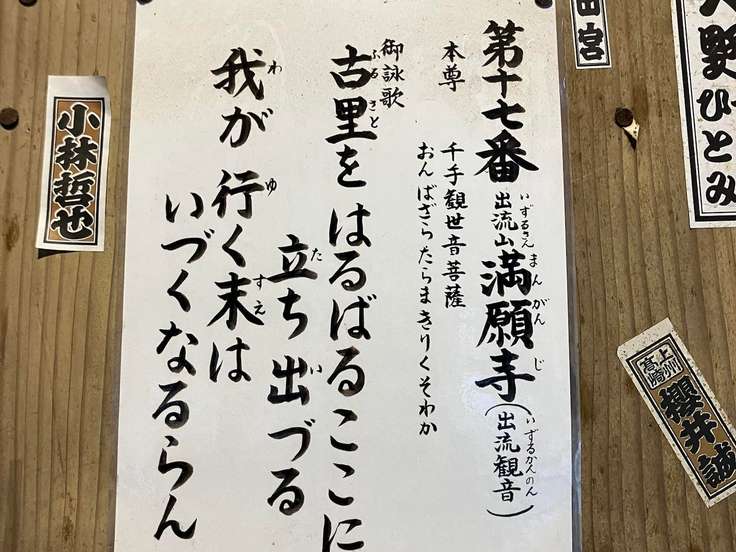 第十七番 出流山 満願寺(出流観音)
いずるさん まんがんじ いずるかんのん
本尊 千手観世音菩薩
おんばざらたらまきりくそわか
御詠歌
古里をはるばるここに
ふるさと
立ち出づる
た い
我が行く末は
わ ゆ すえ
いづくなるらん
小林哲也
田宮
野ひとみ
上州
高崎
櫻井誠